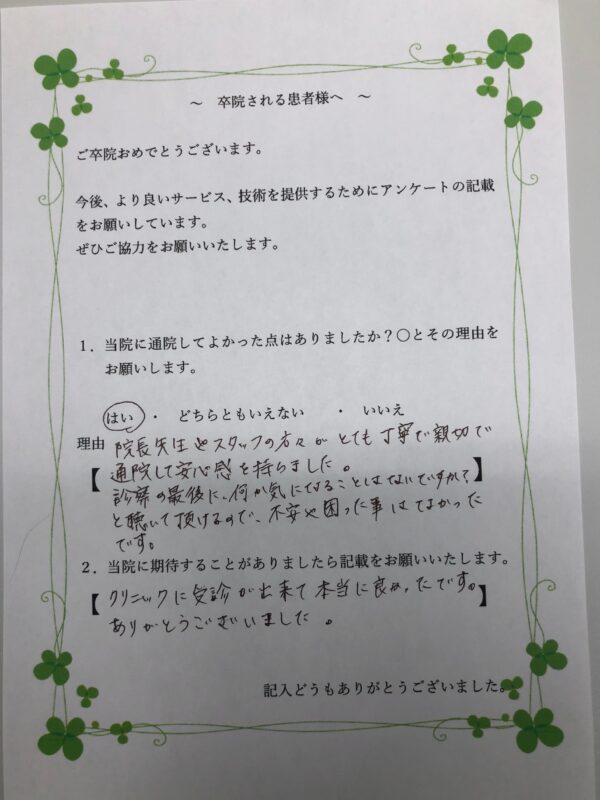 ～ 卒院される患者様へ ～
ご卒院おめでとうございます。
今後、より良いサービス、技術を提供するためにアンケートの記載
をお願いしています。
ぜひご協力をお願いいたします。
1．当院に通院してよかった点はありましたか？〇とその理由を
お願いします。
はい ・ どちらともいえない ・ いいえ
理由 院長先生やスタッフの方々がとても丁寧で親切で
【 通院して安心感を持ちました。
診察の最後に、何か気になることはないですか？ 】
と聴いて頂けるので、不安や困った事はなかった
です。
2．当院に期待することがありましたら記載をお願いいたします。
【 クリニックに受診が出来て本当に良かったです。 】
ありがとうございました。
記入どうもありがとうございました。